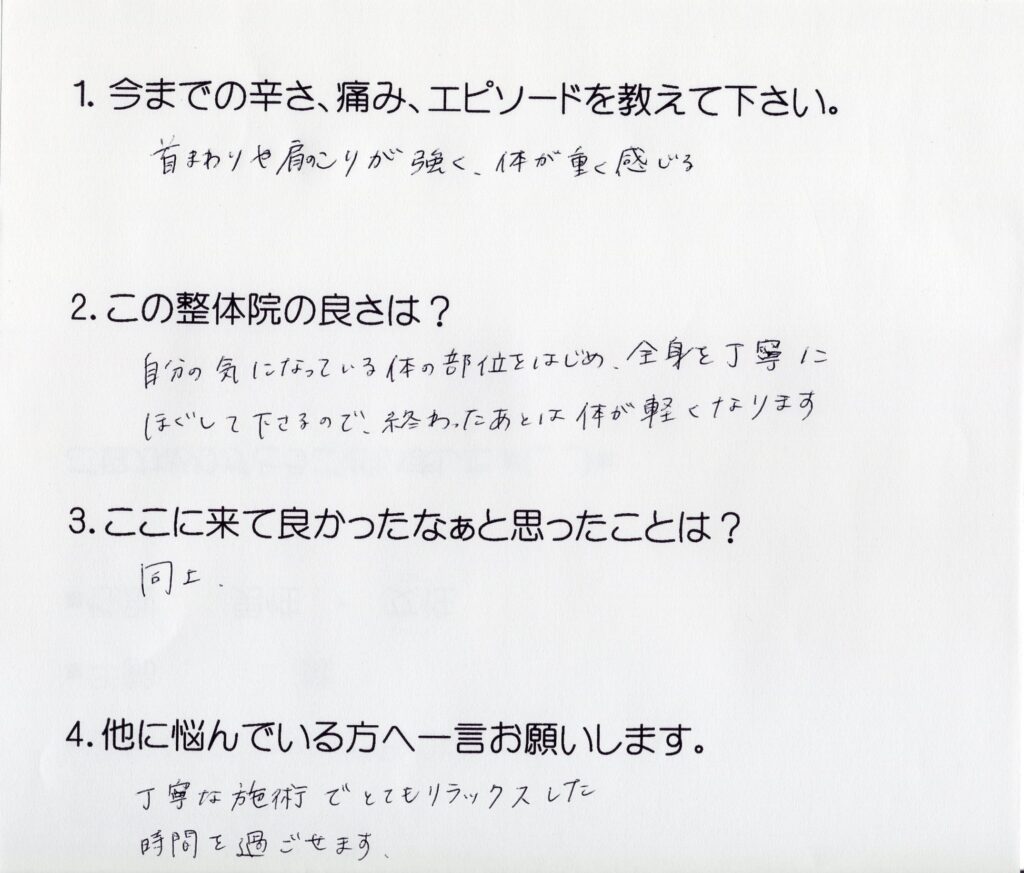 1. 今までの辛さ、痛み、エピソードを教えて下さい。
首まわりや肩のこりが強く、体が重く感じる
2. この整体院の良さは？
自分の気になっている体の部位をはじめ、全身を丁寧に
ほぐして下さるので、終わったあとは体が軽くなります
3. ここに来て良かったなぁと思ったことは？
同上.
4. 他に悩んでいる方へ一言お願いします。
丁寧な施術でとてもリラックスした
時間を過ごせます.